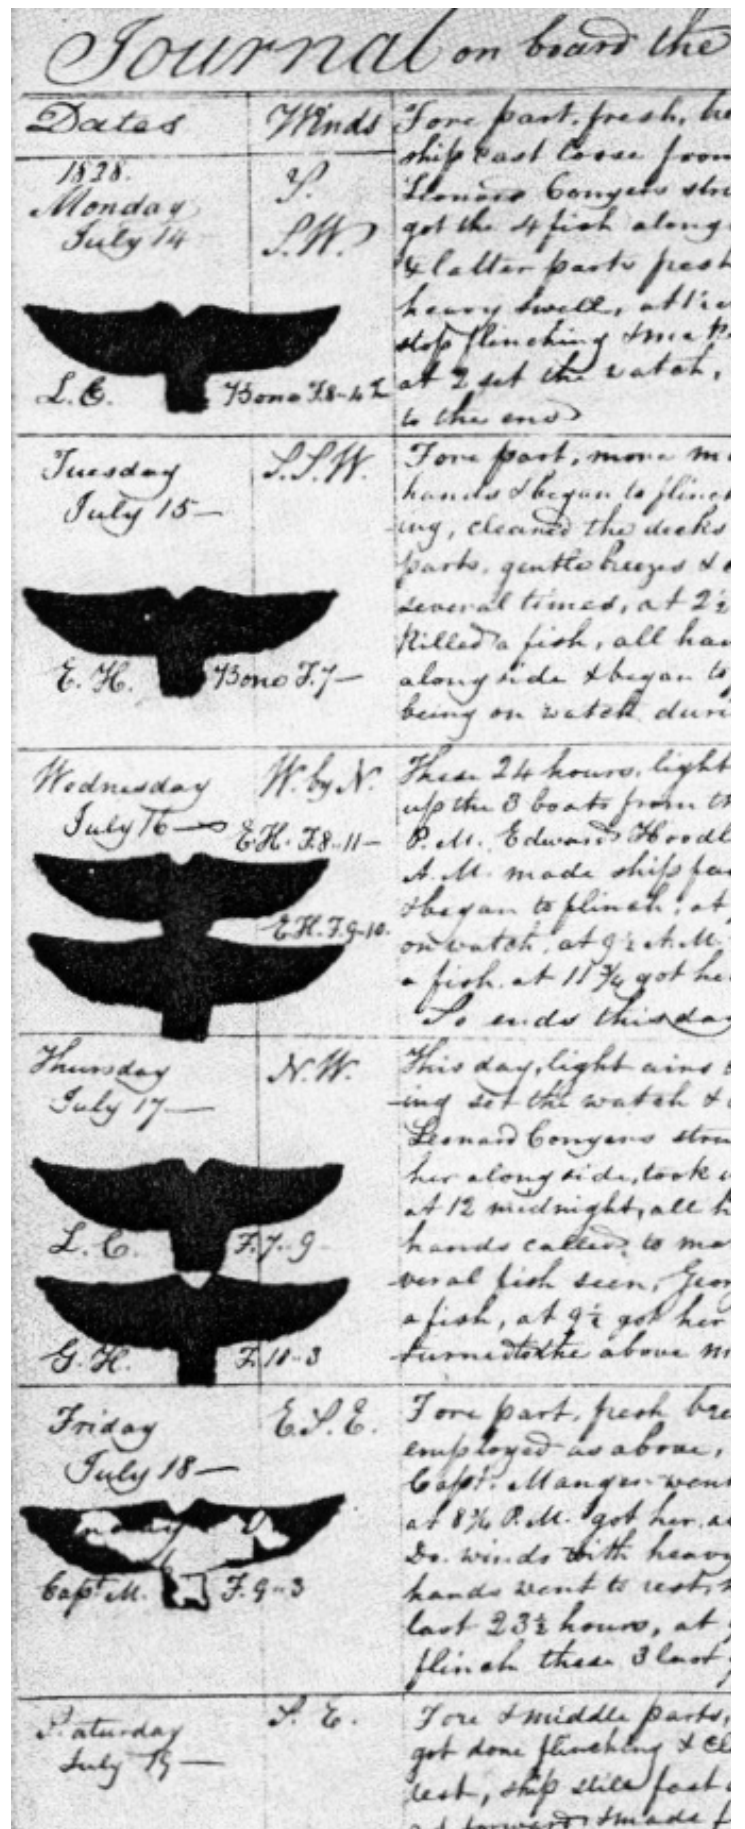 Journal on board the
Dates
Winds
1828.
Monday
July 14
S.
S.W.
L.C.
Bone F.8-4½
Fore part, fresh,
ship cast loose from
Leonard Congers
got the 4 fish along
& latter parts fresh
heavy swell, at
stop flinching &
at 2 set the watch,
to the end
Tuesday
July 15—
S.S.W.
E. H.
Bone F.7—
Fore part, more
hands & began to flinch
-ing, cleaned the decks
parts, gentle breezes &
several times, at 2½
killed a fish, all
alongside & began to
being on watch
Wednesday
July 16—
W. by N.
E.H. F.8-11-
E.H. F.9-10.
These 24 hours, light
up the 3 boats from
P.M. Edward
A.M. made ship
& began to flinch, at
on watch, at 9½ A.M.
a fish, at 11¾ got her
So ends this day
Thursday
July 17—
N.W.
L. C.
F.7-9
G. H.
F.10-3
This day, light airs &
-ing set the watch &
Leonard Congers
her along side, took
at 12 midnight, all
hands called to
-veral fish seen,
a fish, at 9½ got her
turned to the above
Friday
July 18—
E.S.E.
Capt. M.
F.9-3
Fore part, fresh
employed as above,
Capt. Manger went
at 8¾ P.M. got her
Do. winds with heavy
hands went to rest,
last 23½ hours, at
flinch these 3 last
Saturday
July 19—
S. E.
Fore & middle parts,
got done flinching &
ship still fast
forward & made